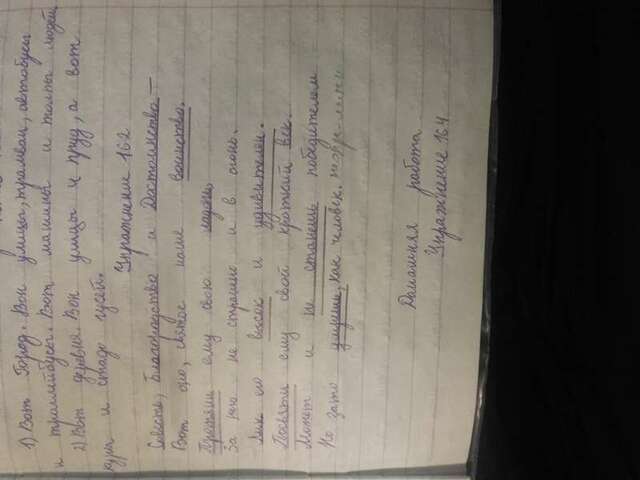 1) Вот Город. Вон улицы, трамваи, автобусы
и троллейбусы. Вот машины и толпы людей.
2) Вот деревня. Вон улицы и пруд, а вот
куры и стадо гусей.
Упражнение 162
Совесть, Благородство и Достоинство —
Вот оно, святое наше воинство.
Протяни ему свою ладонь,
За него не страшно и в огонь.
Лик его высок и удивителен.
Посвяти ему свой краткий век.
Может и не станешь победителем
Но зато умрешь, как человек.
Домашняя работа
Упражнение 164